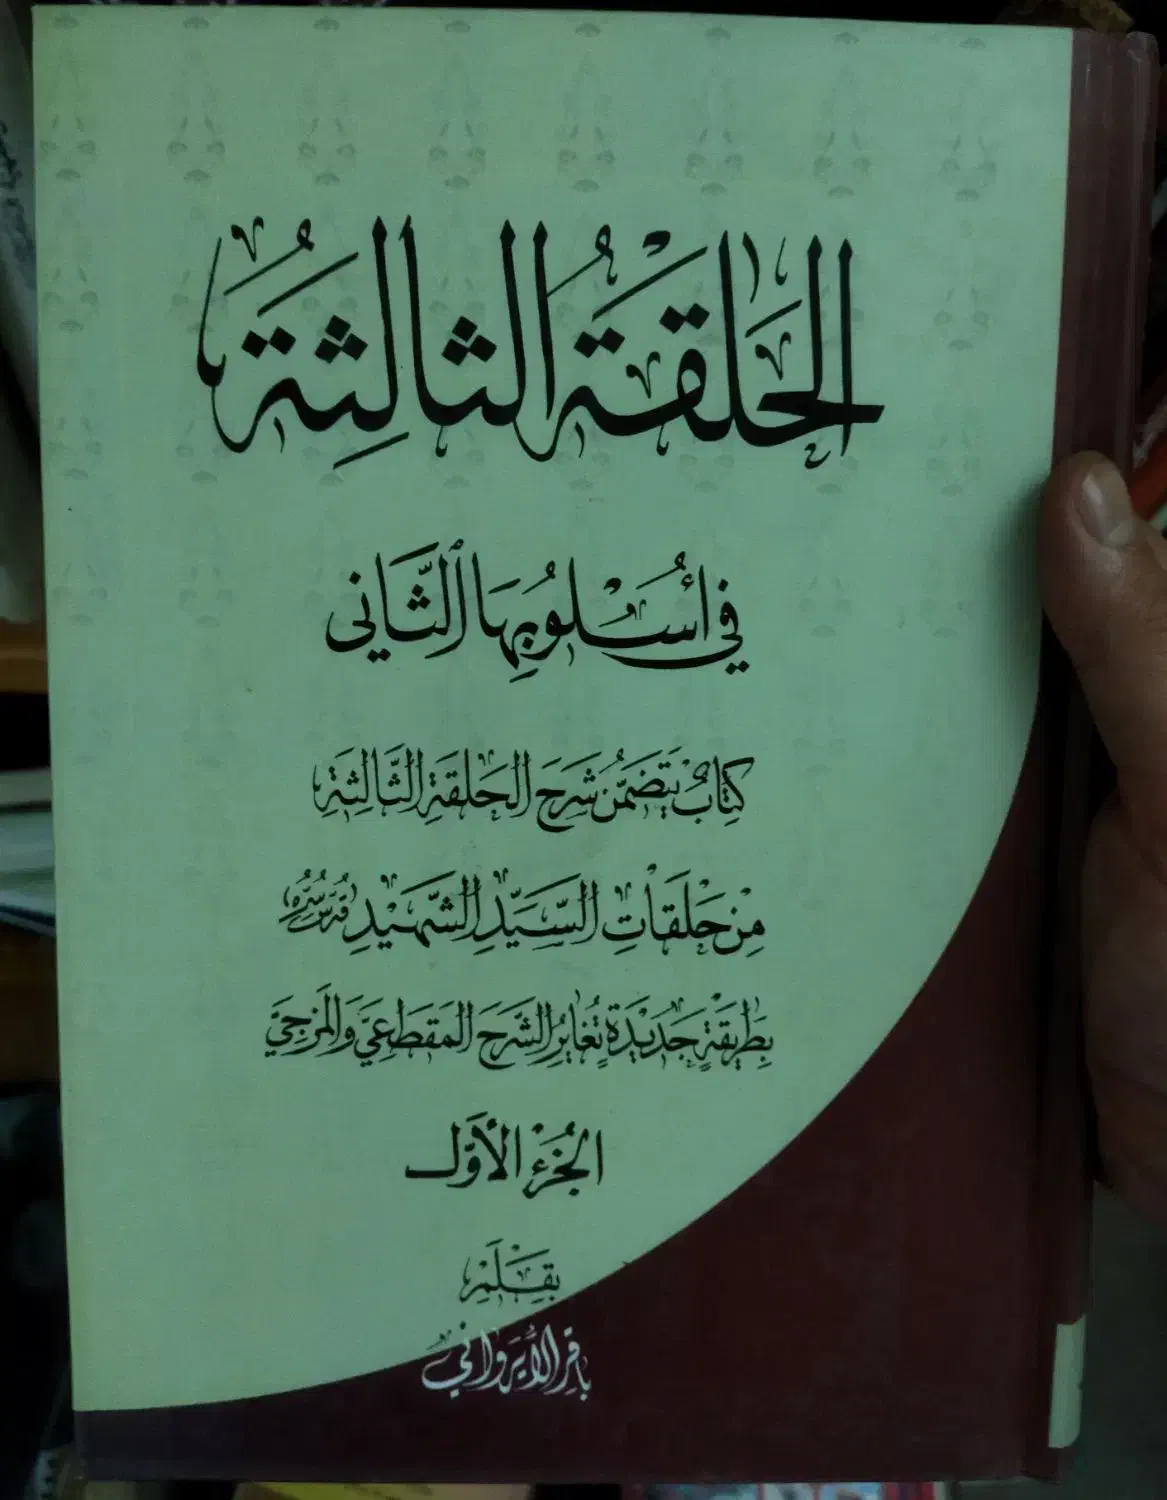 الحَلقَةُ الثالِثَةُ
في أُسْلُوبِهَا الثَّاني
كِتَابٌ يَتَضَمَّنُ شَرحَ الحَلقَةِ الثَّالِثَةِ
مِنْ حَلَقَاتِ السَّيِّدِ الشَّهِيْدِ (قُدِّسَ سِرُّهُ)
بِطَرِيقَةٍ جَدِيْدَةٍ تُغَايِرُ الشَّرحَ المَقطَعِيَّ وَالمَزجِيَّ
الجُزْءُ الأَوَّل
بِقَلَمِ
باقر الأيرواني